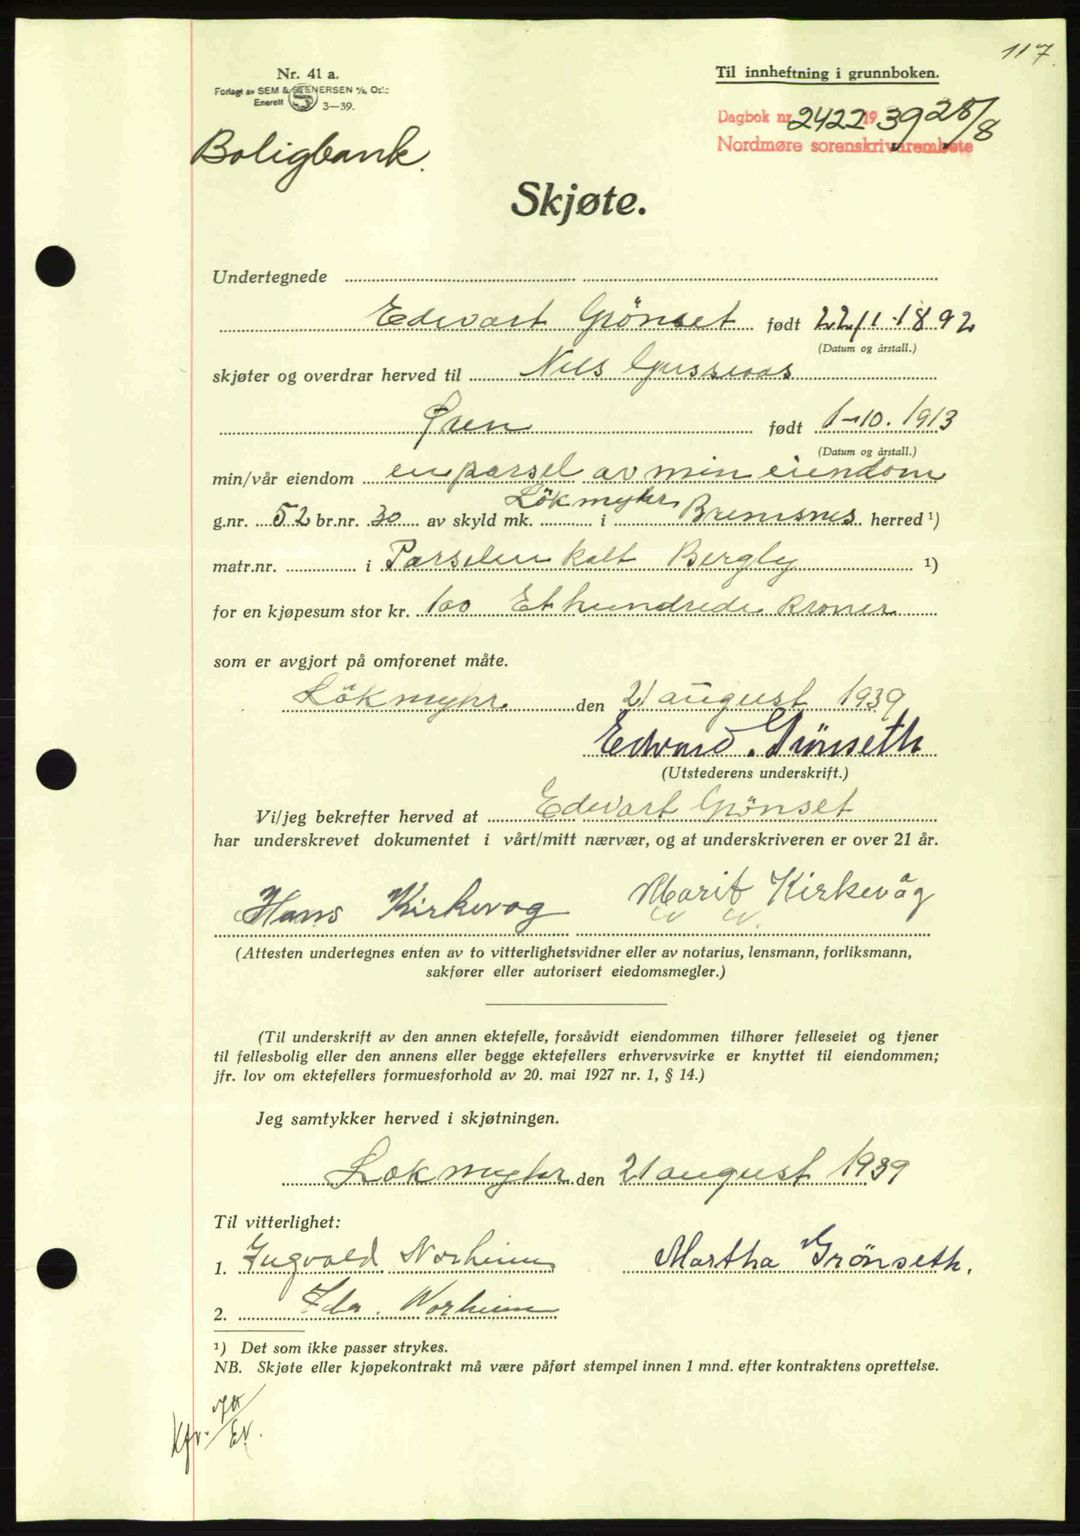 117
Nr. 41 a.
Til innheftning i grunnboken.
Forlagt av SEM & STENERSEN A/S, Oslo
Enerett 3—39.
Dagbok nr. 2422 1939 28/8
Nordmøre sorenskriverembete
Boligbank.
Skjøte.
Undertegnede
Edvart Grönset født 22/1-1892
(Datum og årstall.)
skjøter og overdrar herved til Nils
Øren født 1-10.1913
(Datum og årstall.)
min/vår eiendom en parsel av min eiendom
Lökmyhr
g.nr. 52 br.nr. 30 av skyld mk. i Bremsnes herred ¹)
matr.nr. i Parselen kalt Bergly ¹)
for en kjøpesum stor kr. 100 Et hundrede kroner
som er avgjort på omforenet måte.
Lökmyhr den 21 august 1939
Edvard Grönseth
(Utstederens underskrift.)
Vi/jeg bekrefter herved at Edvart Grönset
har underskrevet dokumentet i vårt/mitt nærvær, og at underskriveren er over 21 år.
Hans Kirkevog Marit Kirkevåg
(Attesten undertegnes enten av to vitterlighetsvidner eller av notarius, lensmann, forliksmann,
sakfører eller autorisert eiedomsmegler.)
(Til underskrift av den annen ektefelle, forsåvidt eiendommen tilhører felleseiet og tjener
til fellesbolig eller den annens eller begge ektefellers erhvervsvirke er knyttet til eiendommen;
jfr. lov om ektefellers formuesforhold av 20. mai 1927 nr. 1, § 14.)
Jeg samtykker herved i skjøtningen.
Lokmyhr den 21 august 1939
Til vitterlighet:
1. Ingvald Norheim Martha Grönseth.
2. Ida Norheim
¹) Det som ikke passer strykes.
NB. Skjøte eller kjøpekontrakt må være påført stempel innen 1 mnd. efter kontraktens oprettelse.